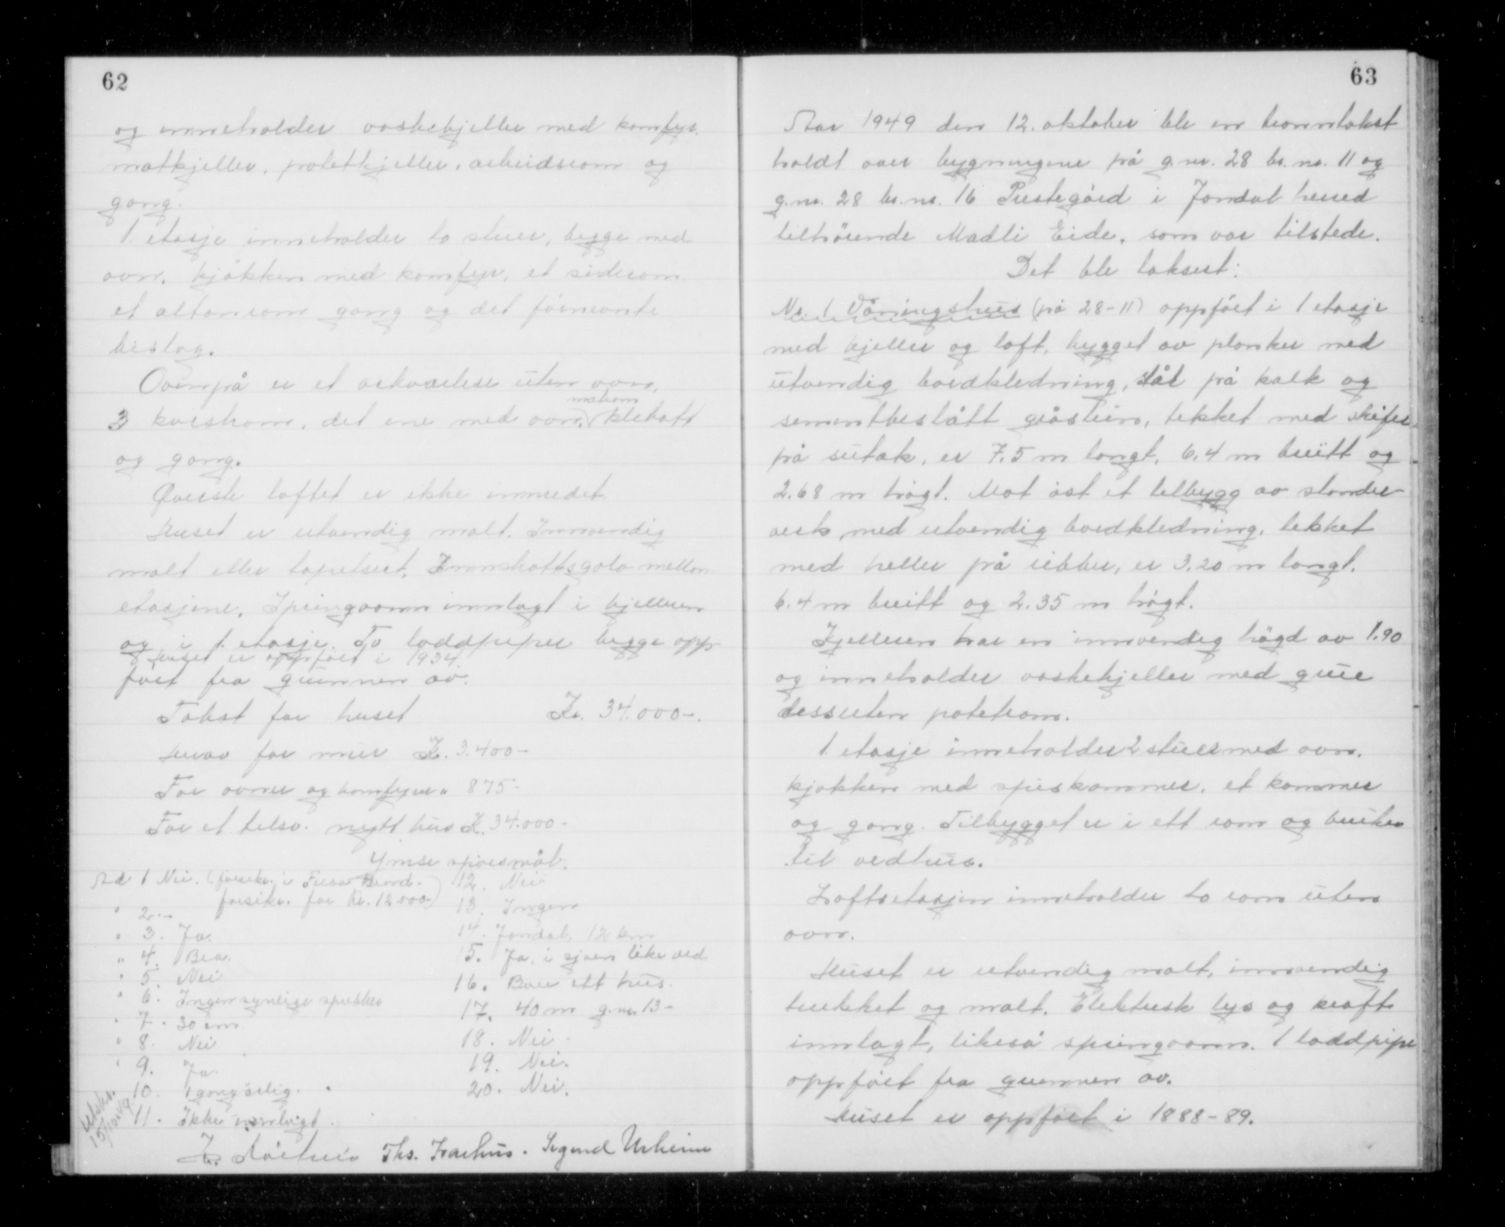 62
og inneholder vaskekjeller med komfyr.
matkjeller, potetkjeller, arbeidsrom og
gang.
1. etasje inneholder to stuer, begge med
ovn, kjøkken med komfyr, et siderom
et altanrom gang og det førnevnte
bislag.
Ovenpå er et arkværelse uten ovn,
3 kvistrom, det ene med ovn, klekott
og gang.
Øverste loftet er ikke innredet
Huset er utvendig malt. Innvendig
malt eller tapetsert. Innskottsgolv mellom
etasjene. Springvann innlagt i kjelleren
og i 1 etasje. To loddpiper begge opp
Huset er oppført i 1934.
ført fra grunnen av.
Takst for huset Kr. 34.000-.
Herav for mur Kr. 3.400-
For ovner og komfyrer " 875-
For et tilsv. nytt hus Kr. 34.000-
Ymse spørsmål.
Ad 1 Nei. (forsikr. i Brand-
forsikr. for kr. 12.000.)
" 2. -
" 3. Ja.
" 4. Bra.
" 5. Nei
" 6. Ingen synlige
" 7. 30 cm
" 8. Nei
" 9. Ja.
10. 1 gang årlig.
11. Ikke innlagt.
12. Nei
13. Ingen
14. Jondal, 12 km
15. Ja, i sjøen like ved
16. Bare ett hus.
17. 40 m g.nr. 13-
18. Nei.
19. Nei.
20. Nei.
Ths. Sigurd
63
Aar 1949 den 12. oktober ble en branntakst
holdt over bygningene på g.nr. 28 br.nr. 11 og
g.nr. 28 br.nr. 16 Prestegård i Jondal herred
tilhørende Madli Eide, som var tilstede.
Det ble taksert:
Nr. 1 Våningshus (på 28-11) oppført i 1 etasje
med kjeller og loft, bygget av planker med
utvendig bordkledning, står på kalk og
sementbeslått gråstein, tekket med skifer
på sutak, er 7.5 m langt, 6.4 m breitt og
2.68 m høgt. Mot øst et tilbygg av stender-
verk med utvendig bordkledning, tekket
med heller på ribber, er 3.20 m langt,
6.4 m breitt og 2.35 m høgt.
Kjelleren har en innvendig høgd av 1.90
og inneholder vaskekjeller med grue
dessuten potetrom.
1 etasje inneholder 2 stuer med ovn,
kjøkken med spiskammer, et kammer
og gang. Tilbygget er i ett rom og brukes
til vedhus.
Loftsetasjen inneholder to rom uten
ovn.
Huset er utvendig malt, innvendig
trekket og malt. Elektrisk lys og kraft
innlagt, likeså springvann. 1 loddpipe
oppført fra grunnen av.
Huset er oppført i 1888-89.